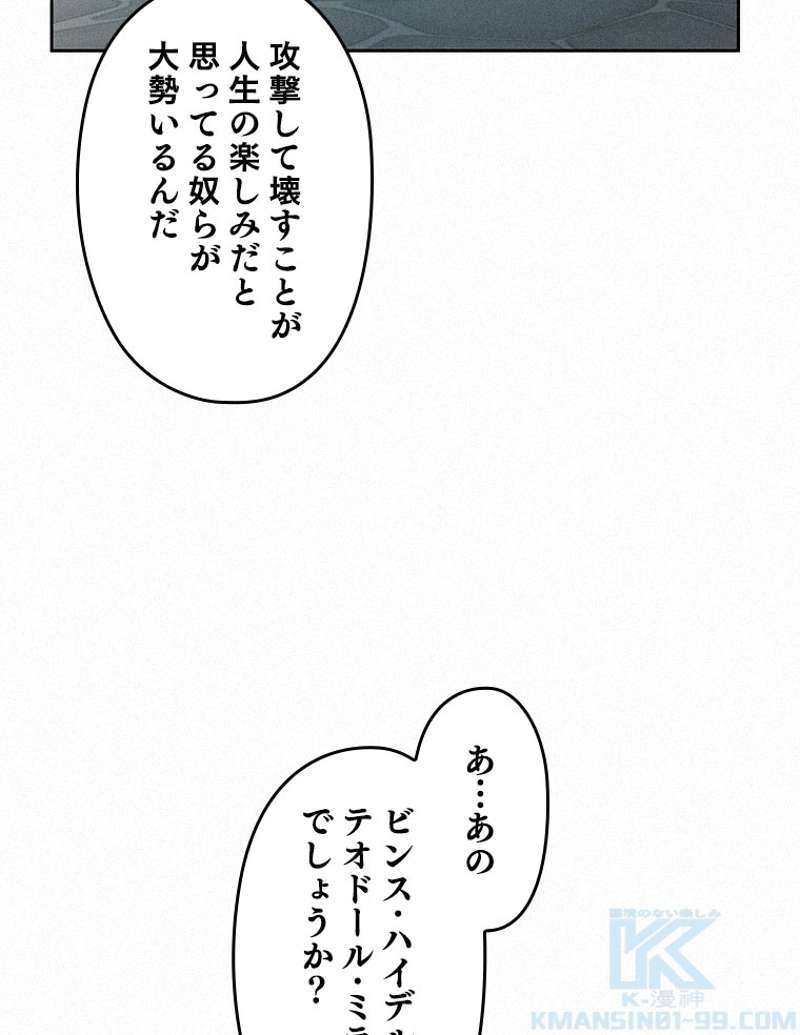 攻撃して壊すことが
人生の楽しみだと
思ってる奴らが
大勢いるんだ
あ…あの
ビンス・ハイデル
テオドール・ミラ
でしょうか?
国境のない楽しみ
K-漫神
KMANSIN01-99.COM